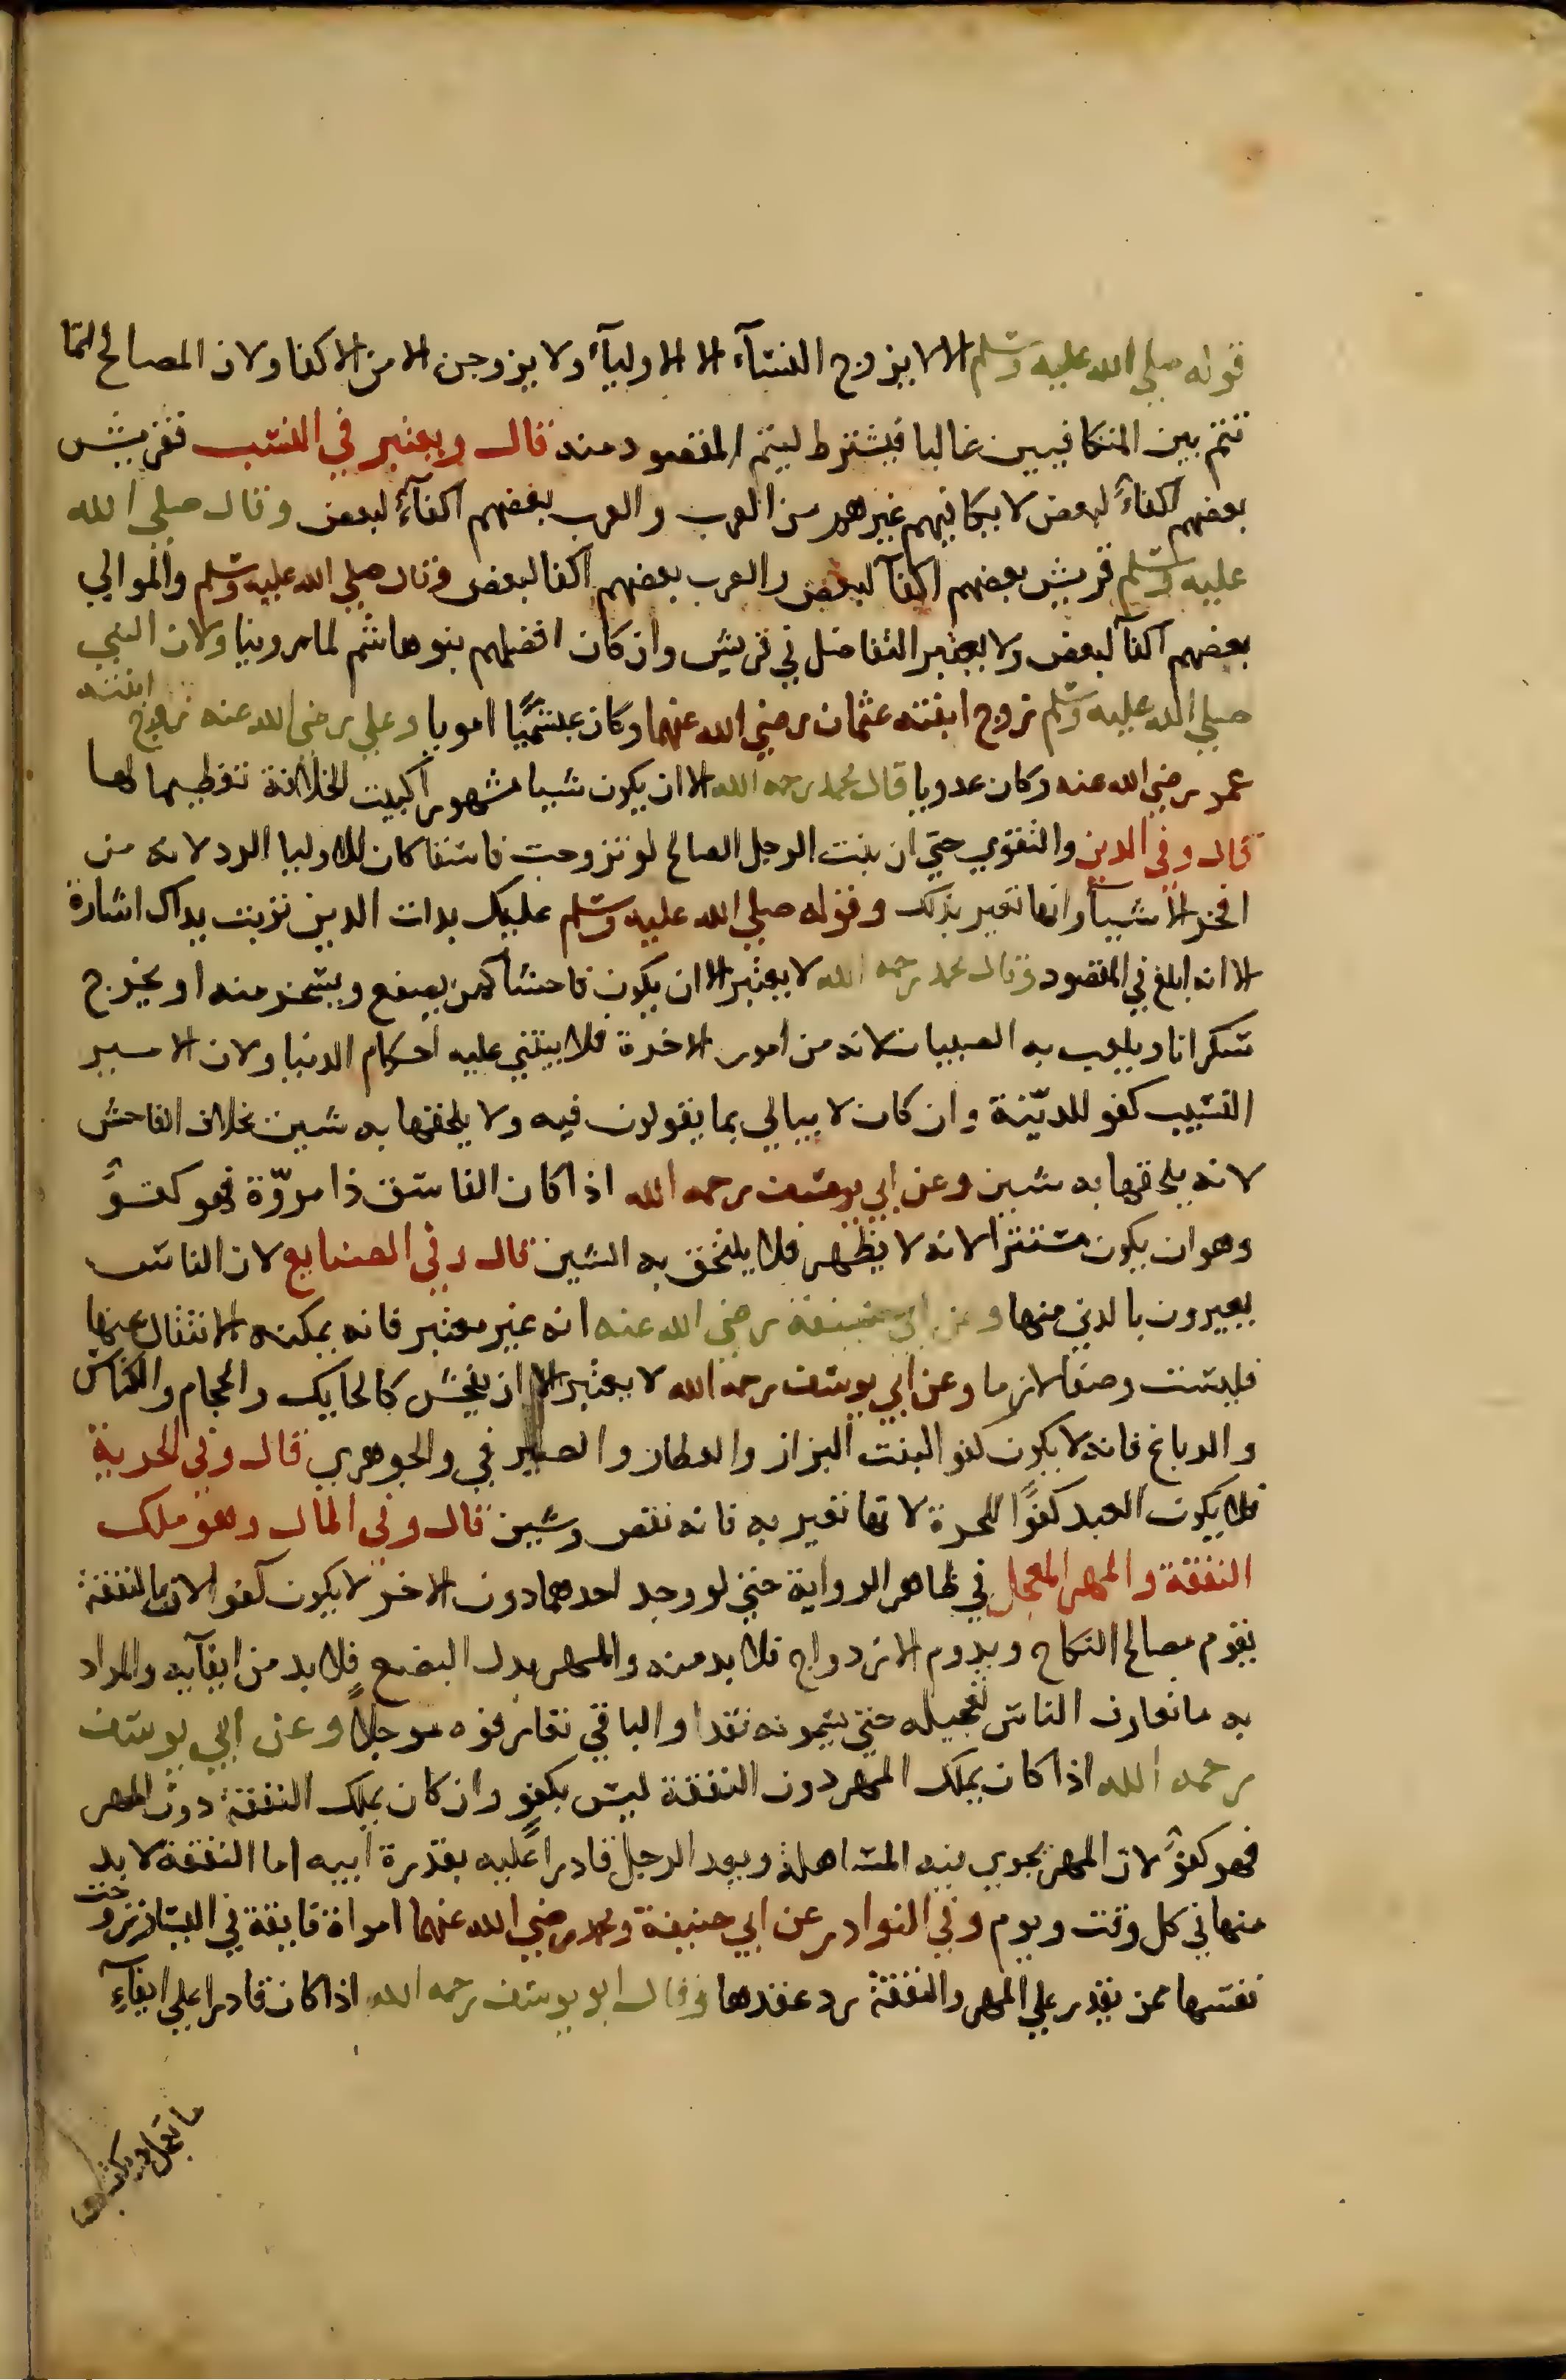 قوله صلي الله عليه وسلم الا لا يزوج النسآء الا الاوليآء ولا يزوجن الا من الاكفا ولان المصالح انما
تتم بين المتكافيين غالبا فيشترط ليتم المقصود منه قال ويعتبر في النسب فقريش
بعضهم اكفاءً لبعض لا يكافيهم غيرهم من العرب والعرب بعضهم اكفآءٌ لبعض وقال صلي الله
عليه وسلم قريش بعضهم اكفآ لبعض والعرب بعضهم اكفا لبعض وقال صلي الله عليه وسلم والموالي
بعضهم اكفآ لبعض ولا يعتبر التفاضل في قريش وان كان افضلهم بنو هاشم لما روينا ولان النبي
صلي الله عليه وسلم تزوج ابنته عثمان رضي الله عنهما وكان عبشميًا امويا وعلي رضي الله عنه تزوج ابنته
عمر رضي الله عنه وكان عدويا قال محمد رحمه الله الا ان يكون شيا مشهورا كبيت الخلافة تعظيما لها
قال وفي الدين والتقوي حتي ان بنت الرجل الصالح لو تزوجت فاسقا كان للاوليا الرد لانه من
افخر الاشيآ وانها تعير بذلك وقوله صلي الله عليه وسلم عليك بذات الدين تربت يداك اشارة
الا انه ابلغ في المقصود وقال محمد رحمه الله لا يعتبر الا ان يكون فاحشا كمن يصفع ويسخر منه او يخرج
سكرانا ويلعب به الصبيان لانه من امور الاخرة فلا يبتني عليه احكام الدنيا ولان الامير
النسيب كفو للديّنة وان كان لا يبالي بما يقولون فيه ولا يلحقها به شين بخلاف الفاحش
لانه يلحقها به شين وعن ابي يوسف رحمه الله اذا كان الفاسق ذا مروّة فهو كفوٌ
وهو ان يكون متستترا لانه لا يظهر فلا يلتحق به الشين قال وفي الصنايع لان الناس
يعيرون بالدني منها وعن ابي حنيفة رضي الله عنه انه غير معتبر فانه يمكنه الانتقال عنها
فليست وصفا لازما وعن ابي يوسف رحمه الله لا يعتبر الا ان يفحش كالحايك والحجام والكناس
والدباغ فانه لا يكون كفو البنت البزاز والعطار والصيرفي والجوهري قال وفي الحرية
فلا يكون العبد كفوًا للحرة لانها تعير به فانه نقص وشين قال وفي المال وهو ملك
النفقة والمهر المعجل في ظاهر الرواية حتي لو وجد احدهما دون الاخر لا يكون كفو لان بالنفقة
يقوم مصالح النكاح ويدوم الازدواج فلا بد منه والمهر بدل البضع فلا بد من ايفآيه والمراد
به ما تعارف الناس تعجيله حتي يسمونه نقدا والباقي تعارفوه موجلاً وعن ابي يوسف
رحمه الله اذا كان يملك المهر دون النفقة ليس بكفوٍ وان كان يملك النفقة دون المهر
فهو كفوٌ لان المهر يجري فيه المساهلة ويعد الرجل قادراً عليه بقدرة ابيه اما النفقة لا بد
منها في كل وقت ويوم وفي النوادر عن ابي حنيفة ومحمد رضي الله عنهما امراة فايقة في اليسار تزوجت
نفسها ممن يقدر علي المهر والنفقة رد عقدها وقال ابو يوسف رحمه الله اذا كان قادرا علي ايفآءِ
ما يعجل